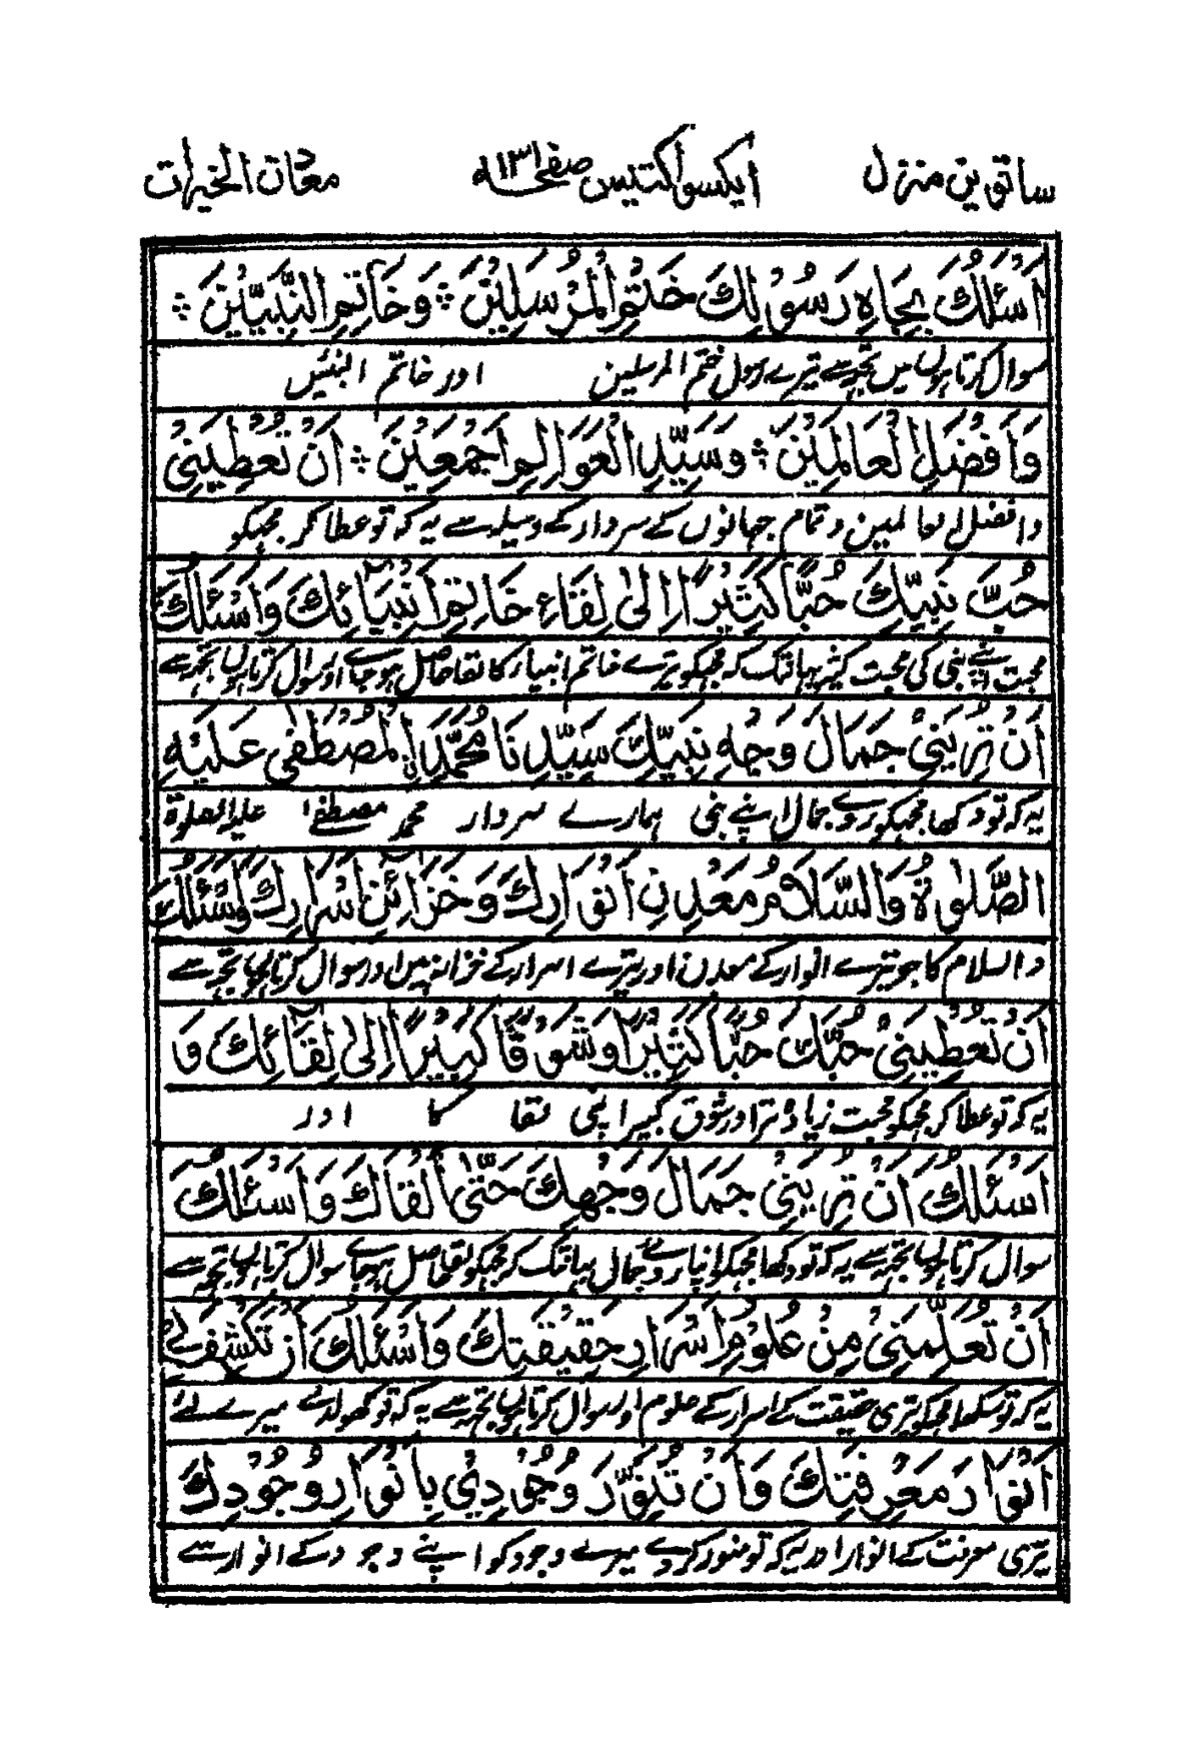 ساتویں منزل ایکسو اکتیس صفحہ ۱۳۱ معدن الخیرات
اَسْئَلُكَ بِجَاهِ رَسُوْلِكَ خَتْمِ الْمُرْسَلِیْنَ ؞ وَخَاتِمِ النَّبِیِّیْنَ ؞
سوال کرتا ہوں میں تجھ سے تیرے رسول ختم المرسلین اور خاتم النبئیں
وَاَفْضَلِ الْعَالَمِیْنَ ؞ وَسَیِّدِ الْعَوَالِمِ اَجْمَعِیْنَ ؞ اَنْ تُعْطِیَنِیْ
و افضل العالمین و تمام جہانوں کے سردار کے وسیلہ سے یہ کہ تو عطا کر مجہکو
حُبَّ نَبِیِّكَ حُبًّا كَثِیْرًا اِلٰی لِقَاءِ خَاتِمِ اَنْبِیَائِكَ وَاَسْئَلُكَ
محبت اپنے نبی کی محبت کثیر یہانتک کہ مجہکو تیرے خاتم انبیاء کا لقا حاصل ہو جائے اور سوال کرتا ہوں تجھ سے
اَنْ تُرِیَنِیْ جَمَالَ وَجْهِ نَبِیِّكَ سَیِّدِنَا مُحَمَّدِنِ الْمُصْطَفٰی عَلَیْهِ
یہ کہ تو دکھا مجہکو روے جمال اپنے نبی ہمارے سردار محمد مصطفےٰ علیہ الصلوۃ
الصَّلٰوةُ وَالسَّلَامُ مَعْدِنِ اَنْوَارِكَ وَخَزَائِنِ اَسْرَارِكَ وَاَسْئَلُكَ
والسلام کا جو تیرے انوار کے معدن اور تیرے اسرار کے خزانہ ہیں اور سوال کرتا ہوں تجھ سے
اَنْ تُعْطِیَنِیْ حُبَّكَ حُبًّا كَثِیْرًا وَشَوْقًا كَبِیْرًا اِلٰی لِقَائِكَ وَ
یہ کہ تو عطا کر مجہکو محبت زیادہ تر اور شوق کبیر اپنی لقا کا اور
اَسْئَلُكَ اَنْ تُرِیَنِیْ جَمَالَ وَجْهِكَ حَتّٰی اَلْقَاكَ وَاَسْئَلُكَ
سوال کرتا ہوں تجھ سے یہ کہ تو دکھا مجہکو اپنا روے جمال یہانتک کہ مجہکو لقا حاصل ہو جائے سوال کرتا ہوں تجھ سے
اَنْ تُعَلِّمَنِیْ مِنْ عُلُوْمِ اَسْرَارِ حَقِیْقَتِكَ وَاَسْئَلُكَ اَنْ تَكْشِفَ لِیْ
یہ کہ تو سکھا مجہکو تیری حقیقت کے اسرار کے علوم اور سوال کرتا ہوں تجھ سے یہ کہ تو کھولدے میرے لئے
اَنْوَارَ مَعْرِفَتِكَ وَاَنْ تُنَوِّرَ وُجُوْدِیْ بِاَنْوَارِ وُجُوْدِكَ
تیری معرفت کے انوار اور یہ کہ تو منور کردے میرے وجود کو اپنے وجود کے انوار سے